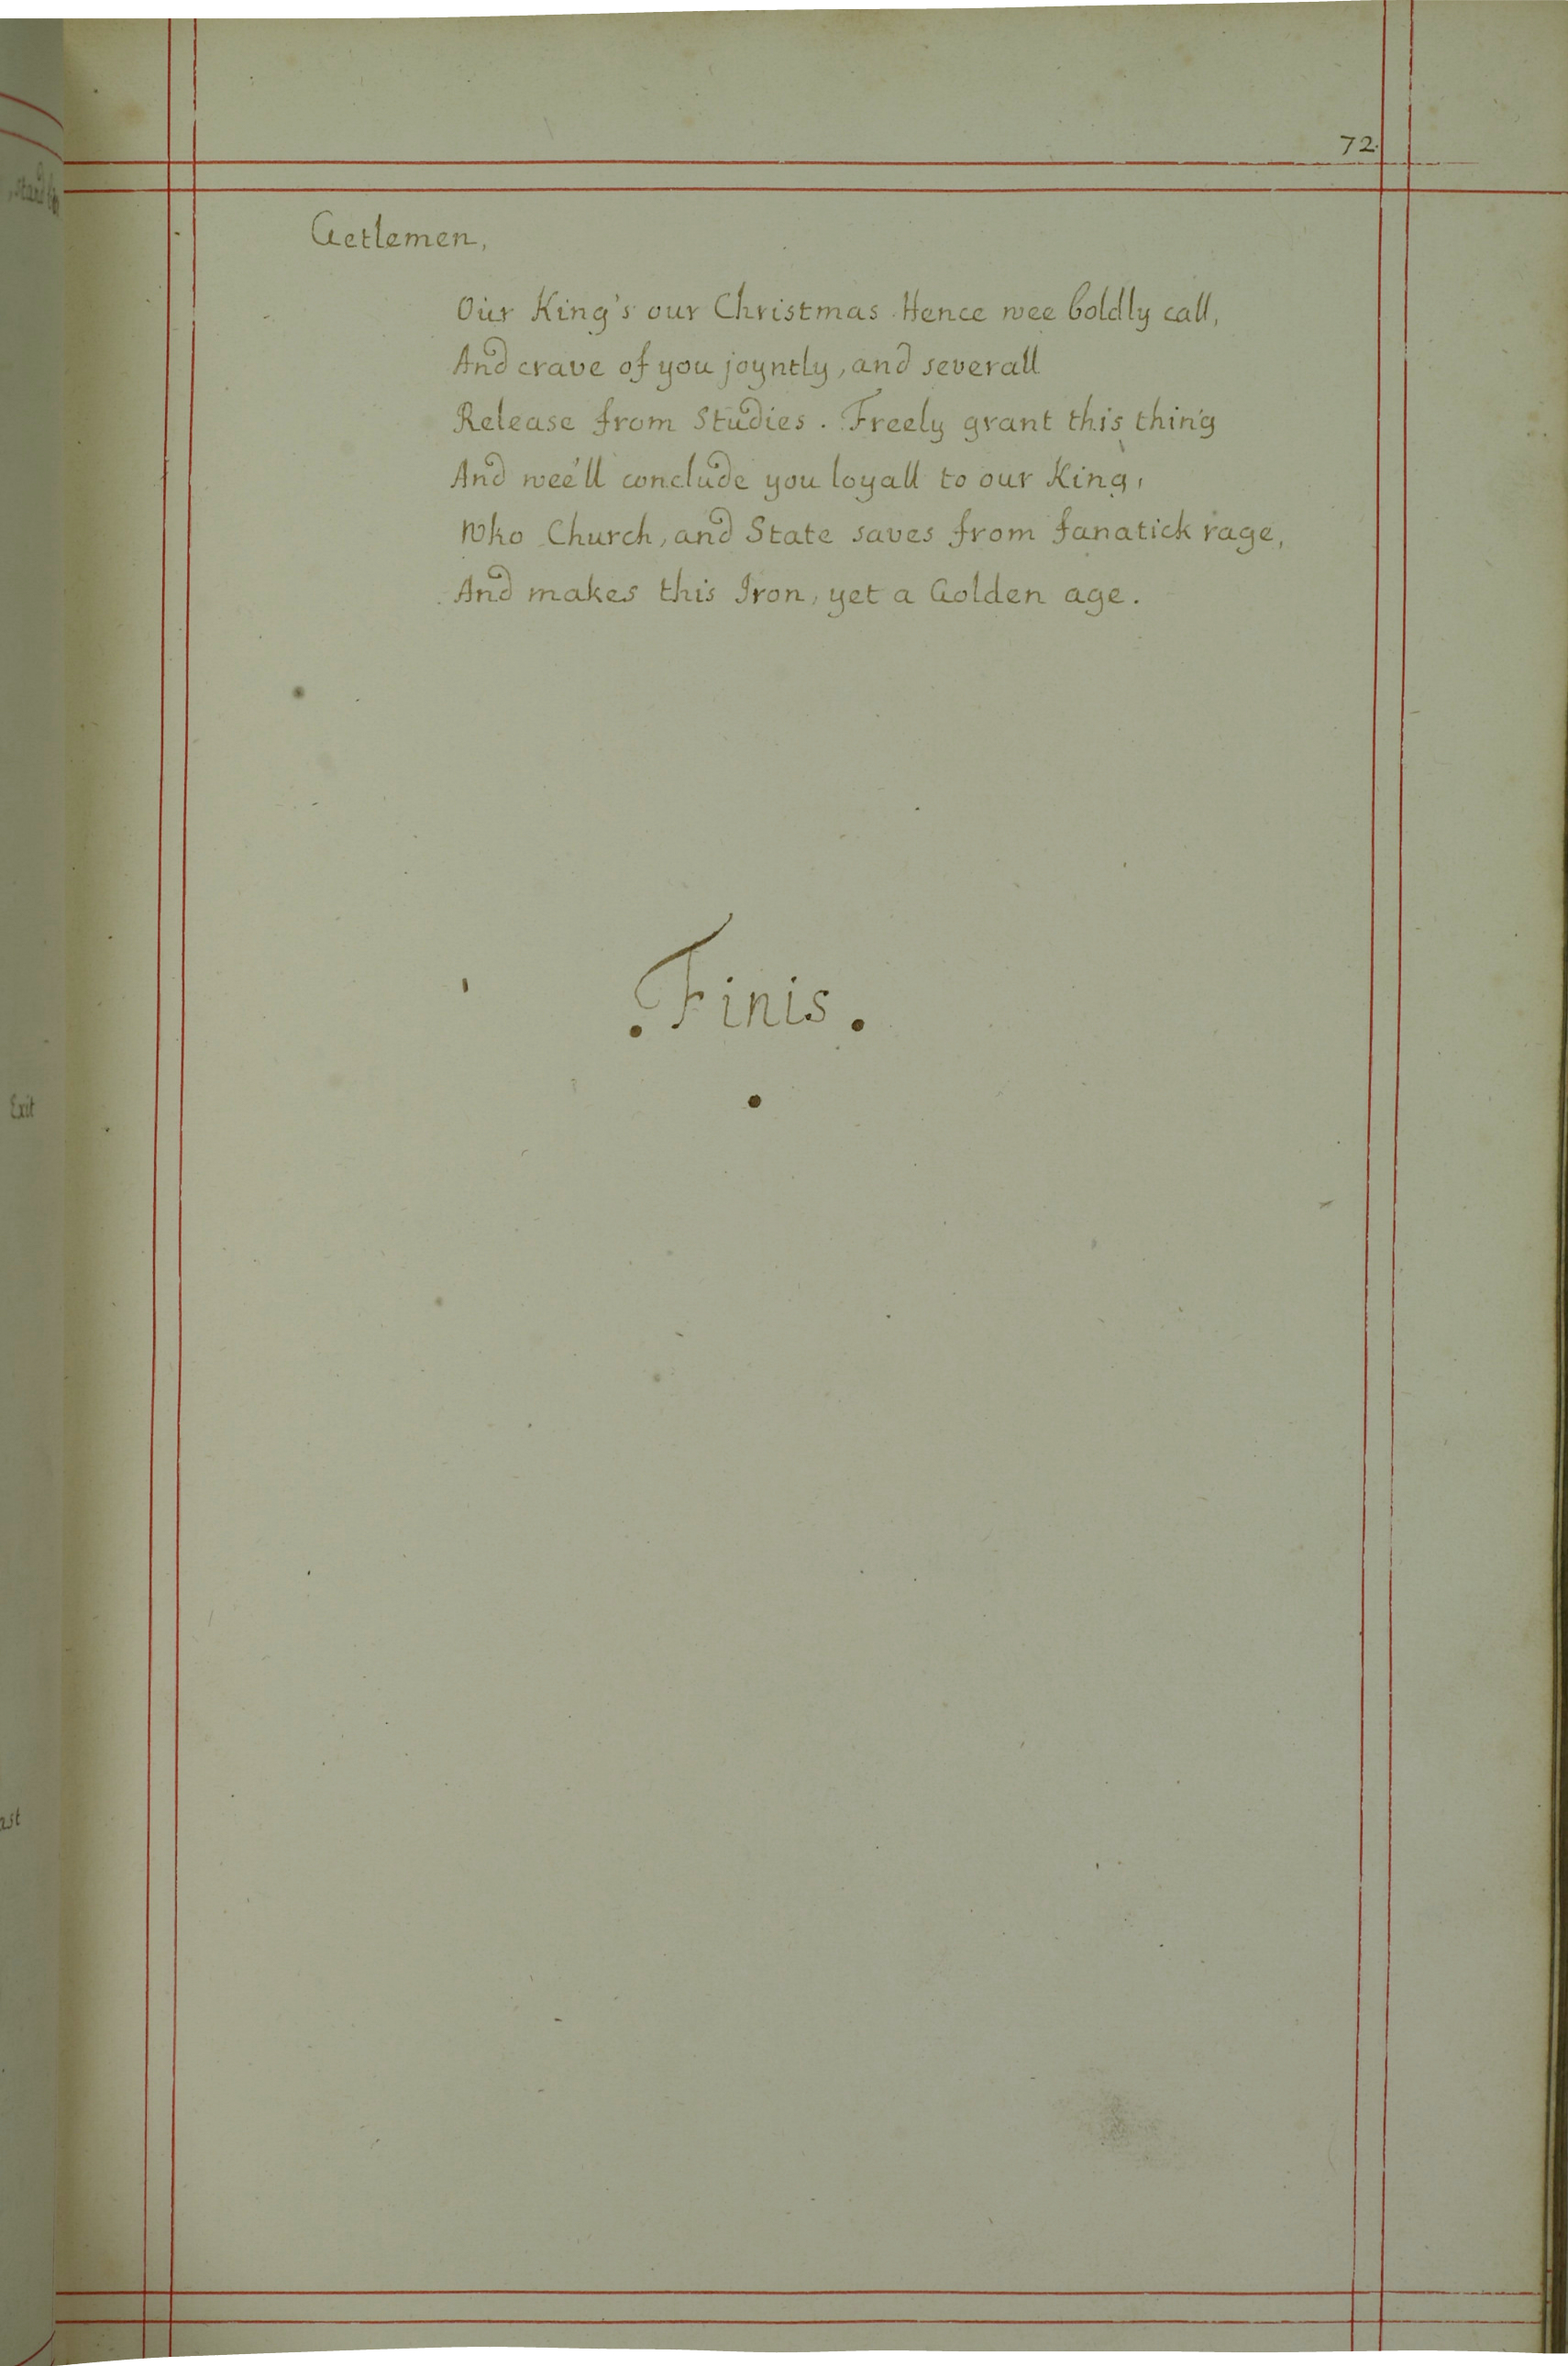 72.
Getlemen,
Our King's our Christmas. Hence wee boldly call,
And crave of you joyntly, and severall
Release from Studies. Freely grant this thing
And wee'll conclude you loyall to our King,
Who Church, and State saves from fanatick rage,
And makes this Iron, yet a Golden age.
.Finis.
Exit